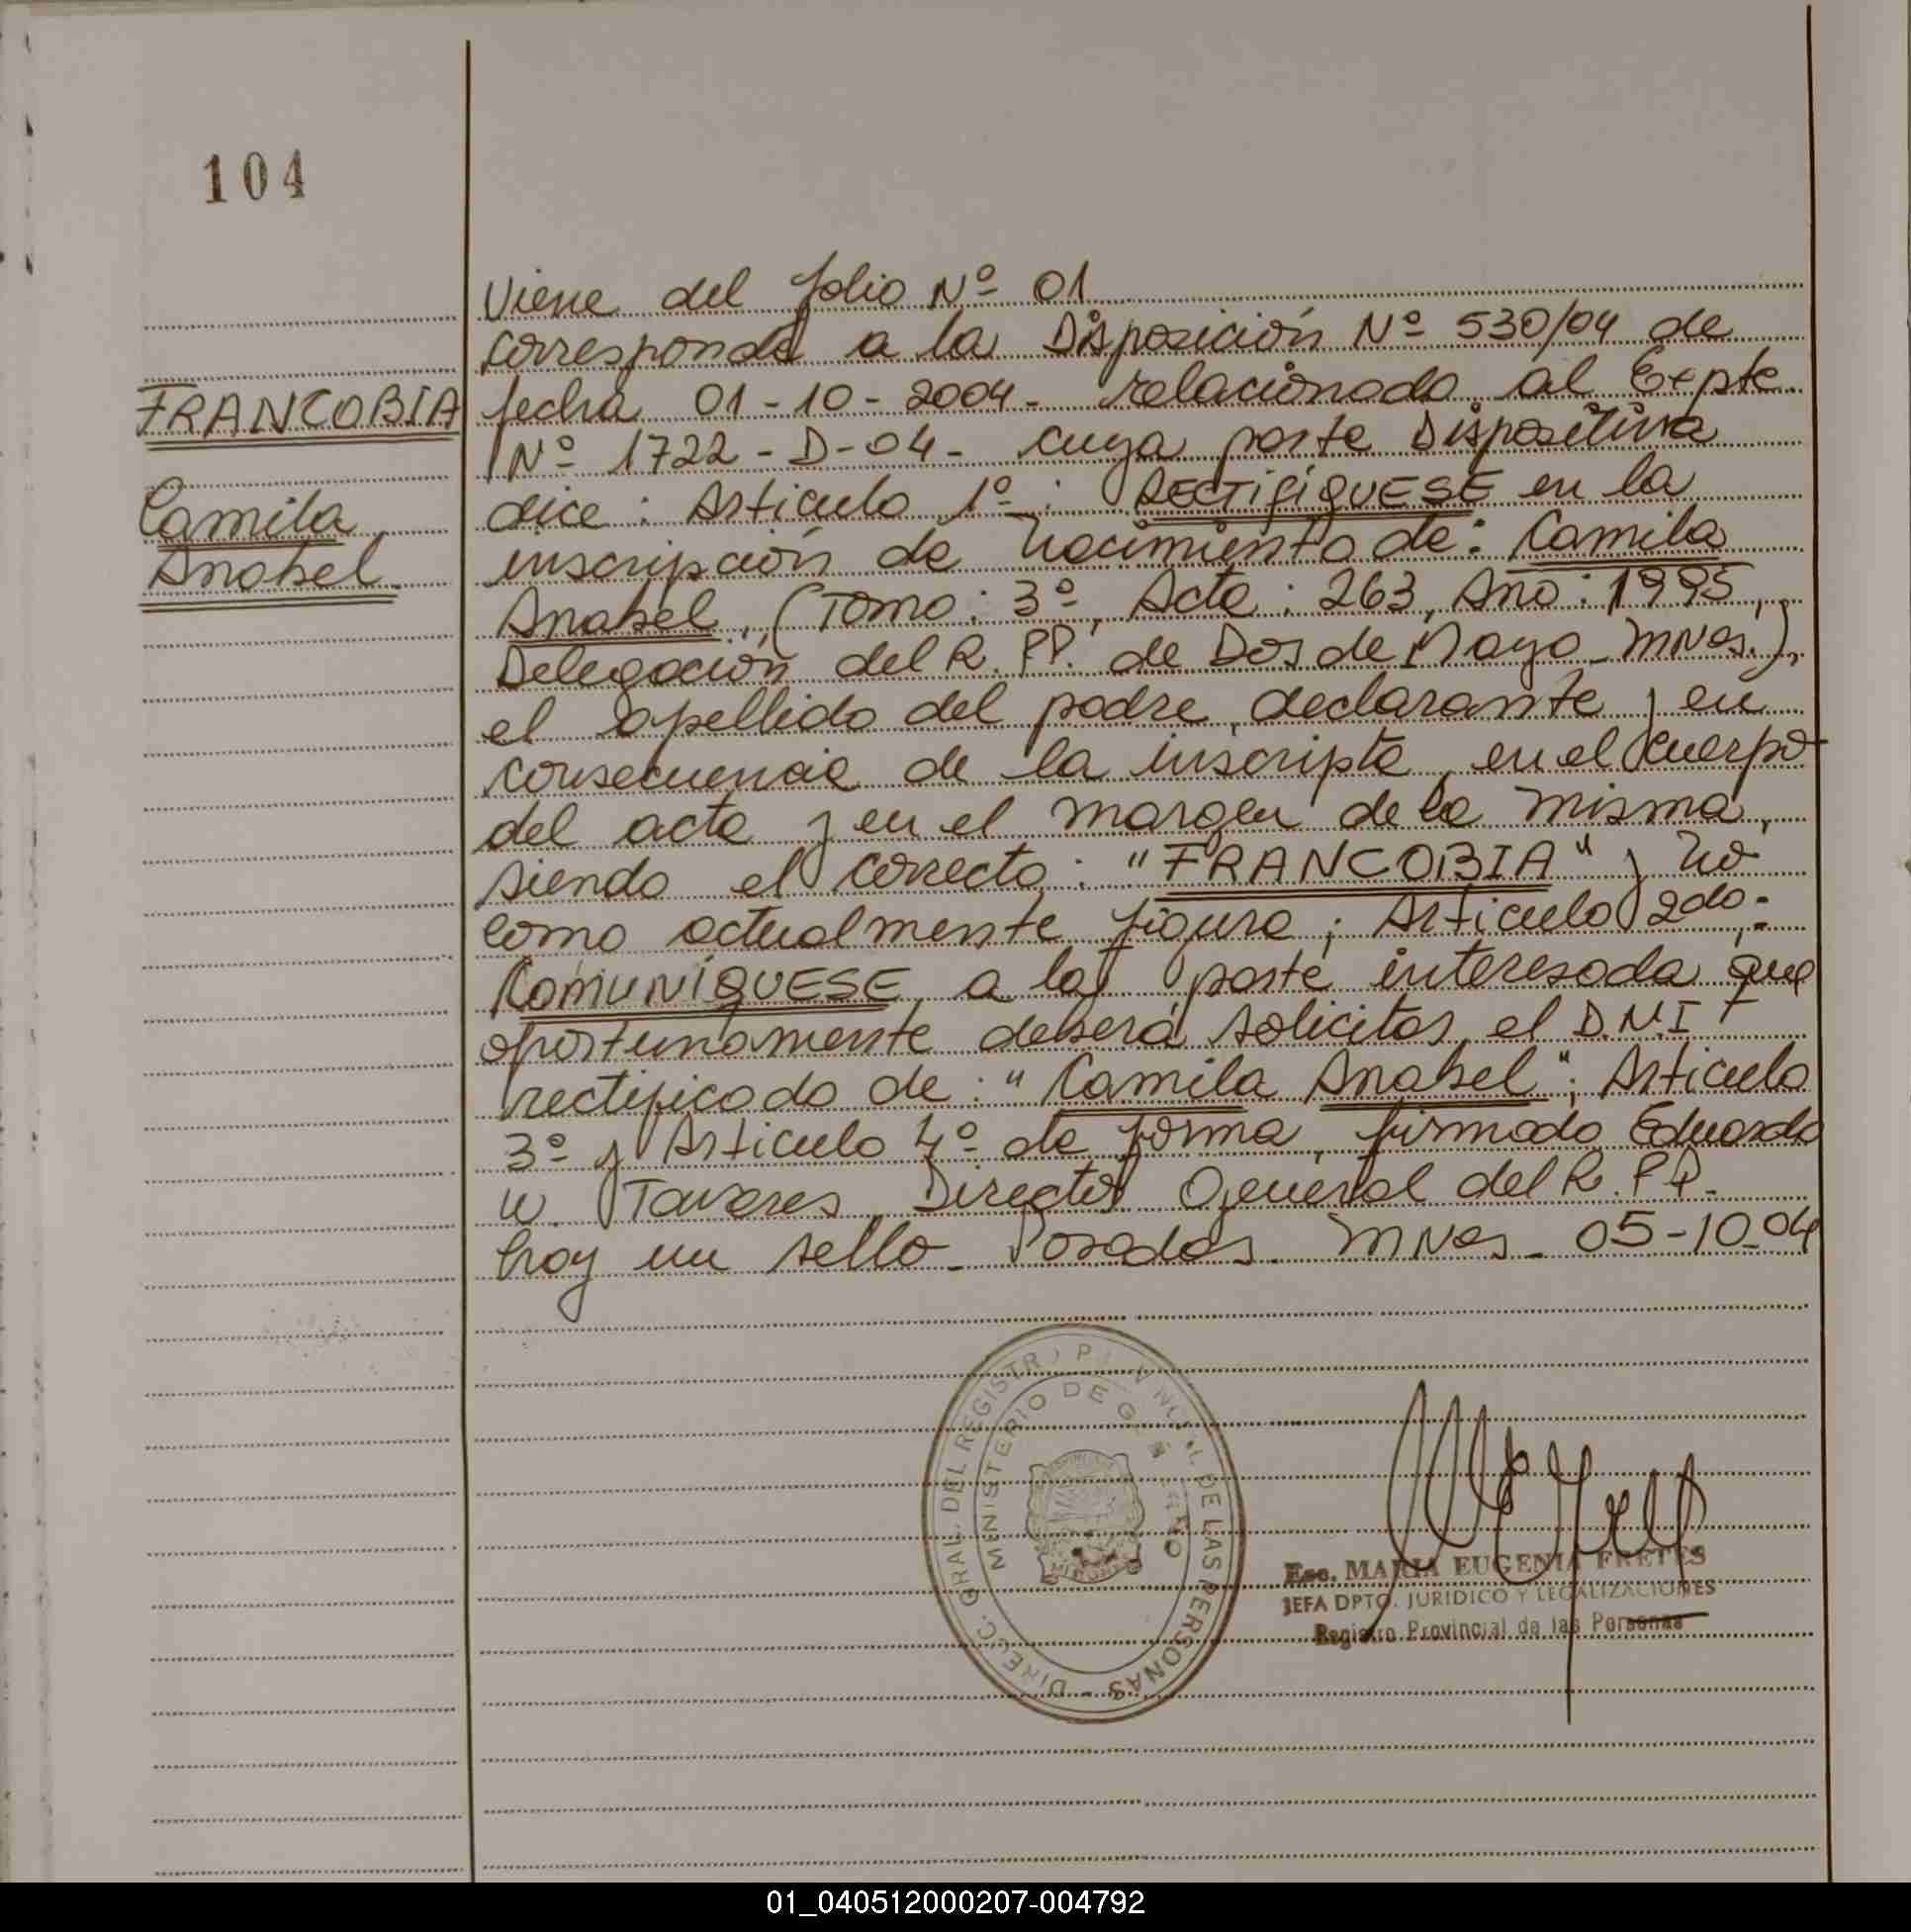 104
FRANCOBIA
Camila
Anabel
Viene del folio Nº 01
corresponde a la Disposición Nº 530/04 de
fecha 01-10-2004- relacionado al Expte
Nº 1722-D-04- cuya parte Dispositiva
dice: Articulo 1º: RECTIFÍQUESE en la
inscripción de nacimiento de: Camila
Anabel, (Tomo: 3º, Acta: 263, Año: 1995,
Delegación del R.PP. de Dos de Mayo-MNes.),
el apellido del padre, declarante y en
consecuencia de la inscripta, en el cuerpo
del acta y en el margen de la misma,
siendo el correcto: "FRANCOBIA" y no
como actualmente figura; Articulo 2do:
COMUNÍQUESE a la parte interesada que
oportunamente deberá solicitar el D.N.I
rectificado de: "Camila Anabel"; Articulo
3º y Articulo 4º de forma, firmado Eduardo
W. Tavares Director General del R.PP.
hay un sello- Posadas- MNes- 05-10-04
DIRECC. GRAL. DEL REGISTRO PROVINCIAL DE LAS PERSONAS -
MINISTERIO DE GOBIERNO
Esc. MARIA EUGENIA FRETES
JEFA DPTO. JURIDICO Y LEGALIZACIONES
Registro Provincial de las Personas
01_040512000207-004792